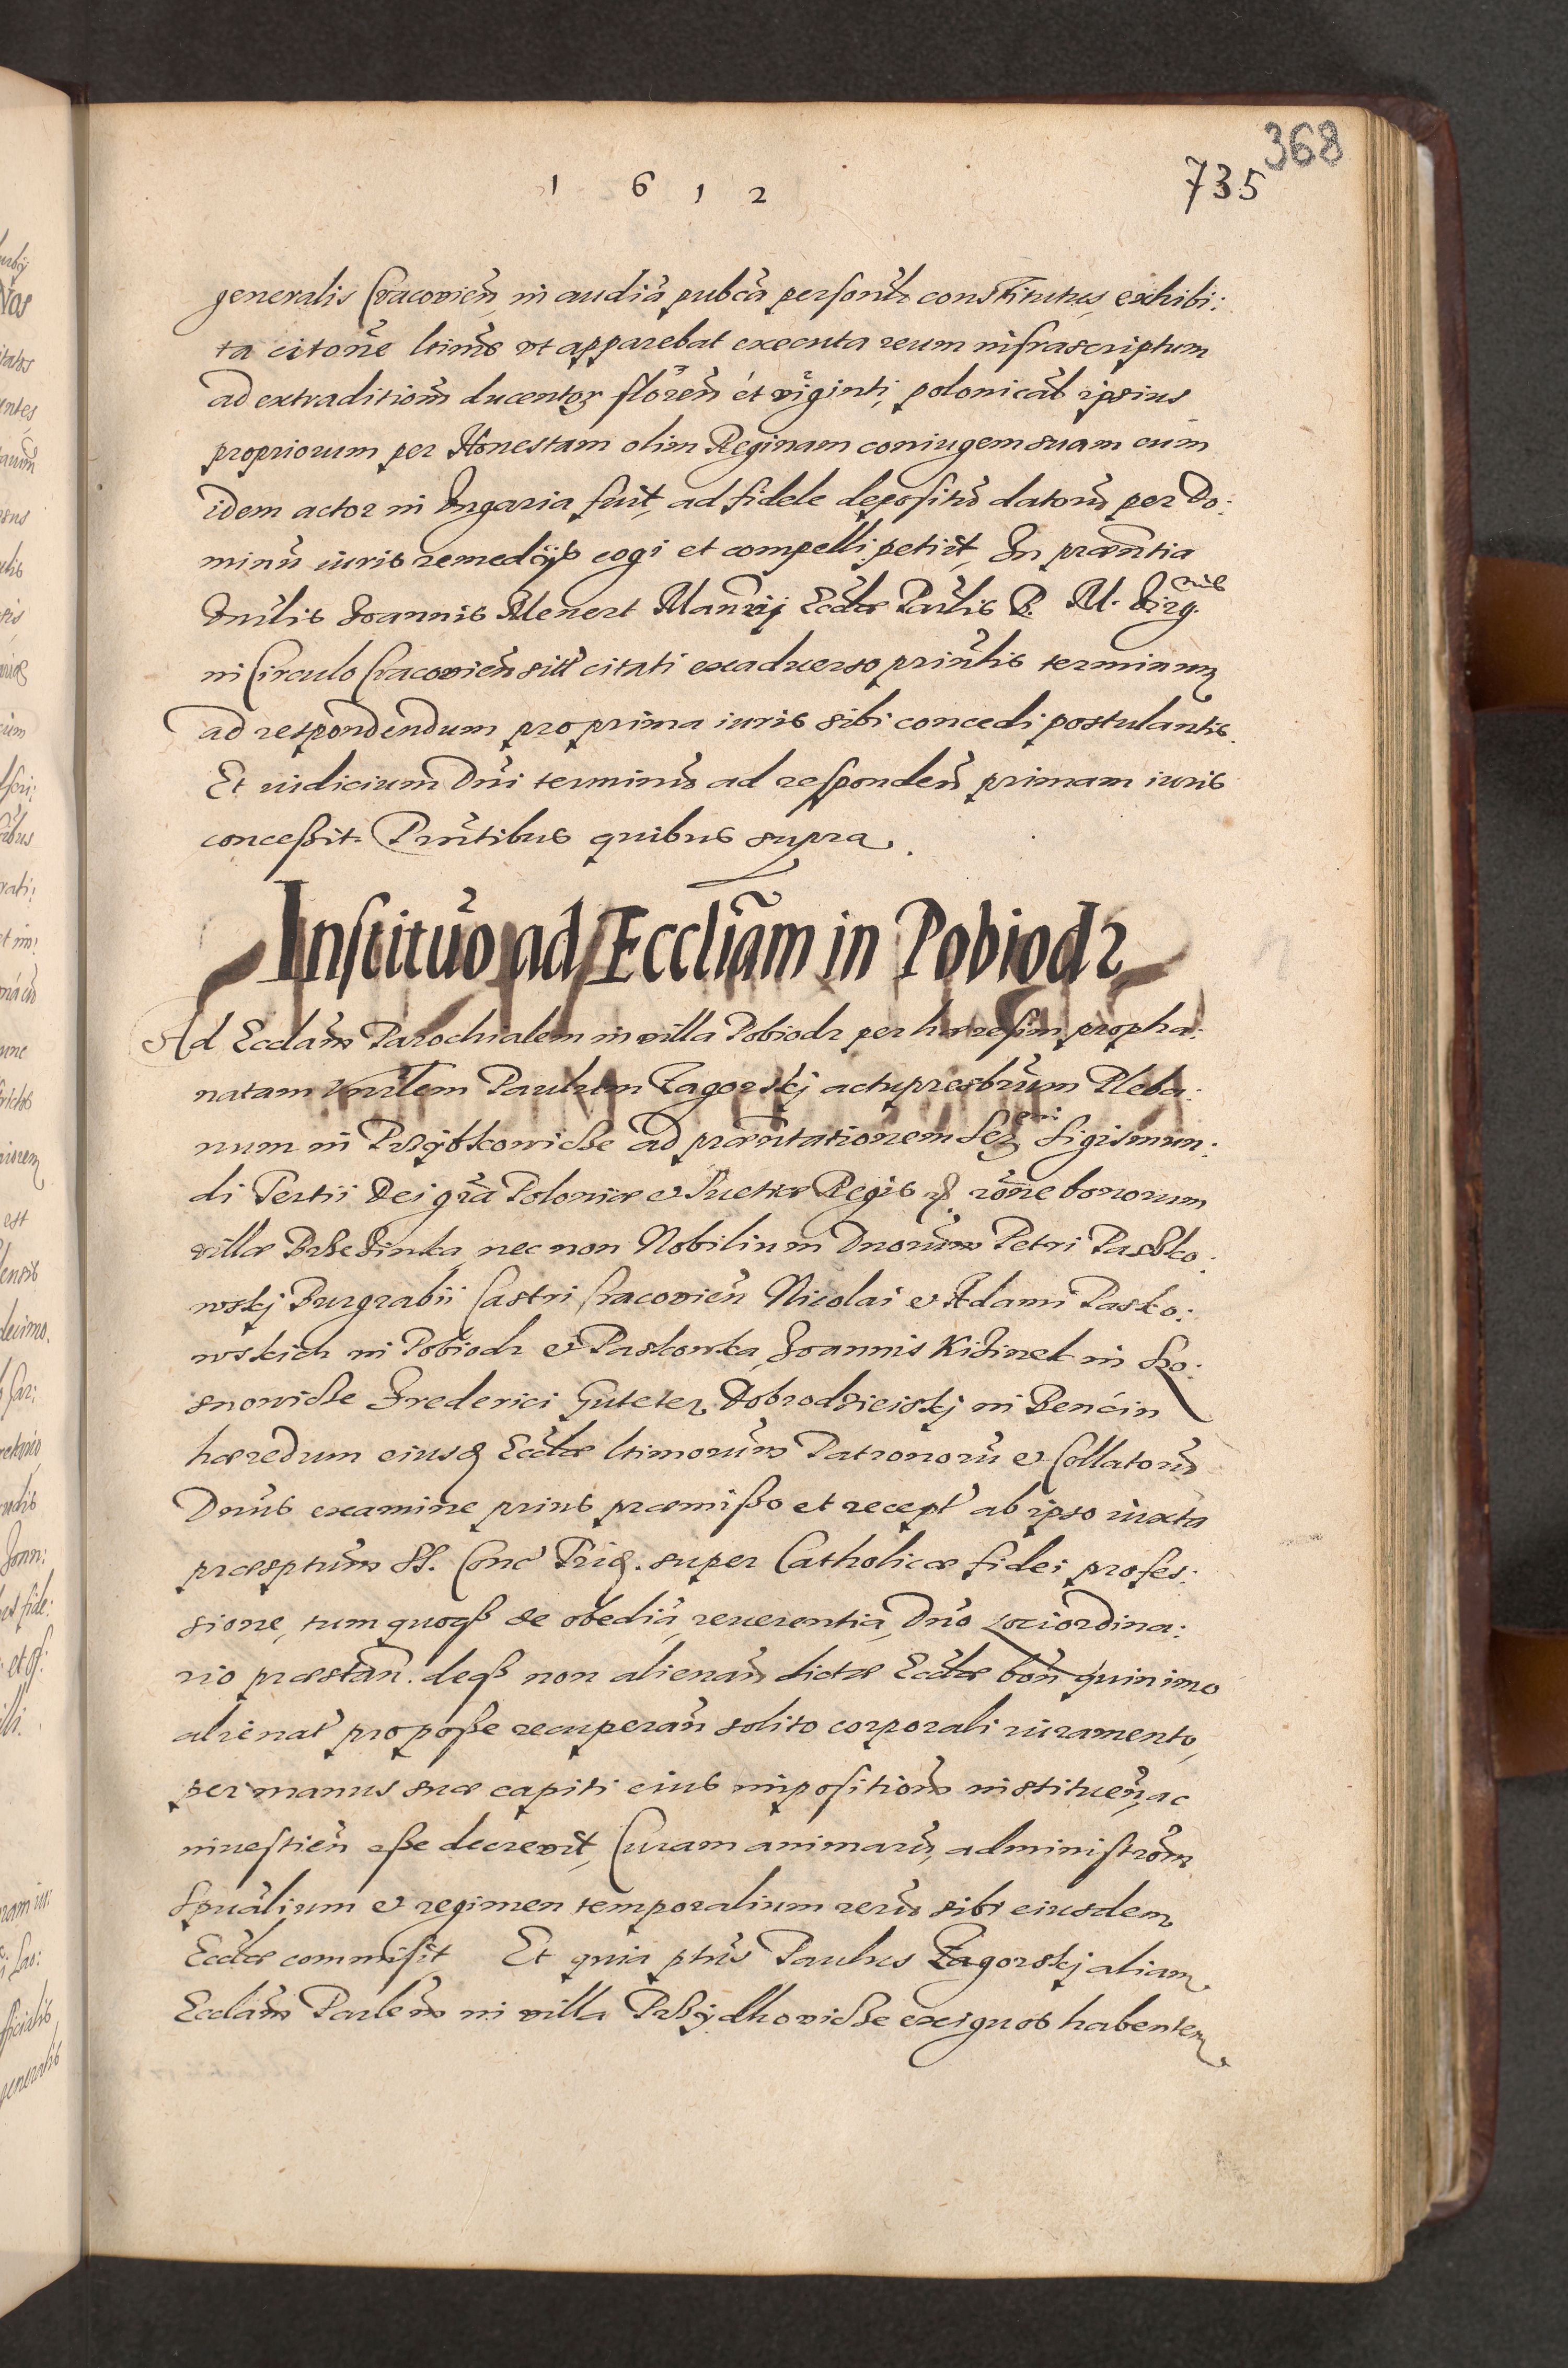 368
1 6 1 2
735
generalis Cracovien̄, in audiā pub̄ca person̄lr constitutus, exhibi:
ta citōne ltimē ut apparebat executa reum infrascriptum
ad extraditionē ducentoꝝ florēn et viginti, polonicāl ipsius
propriorum per Honestam olim Reginam coniugem suam cum
idem actor in Ungaria fuit, ad fidele depositū datorū per Do:
minū iuris remedijs cogi et compelli petijt, In præntia
Joannis Menert Ecclæ B. M. Virg. nis
in Circulo Cracovien citati exadverso terminum
ad respondendum pro prima iuris sibi concedi postulantis.
Et iudicium Dn̄i terminū ad respondeñ primam iuris
conceßit. Prn̄tibus quibus supra.
Institūo ad Eccliãm in Pobiodr
Ad Ecclām Parochialem in villa Pobiodr per hæresim propha:
natam Paulum Zagorskj actu presb̄rum Pleba:
num in ad præn̄tationem Ser eni: Sigismun:
di Tertii Dei grā Poloniæ et Suetiæ Regis rōne bonorum
villæ nec non Nobilium Dnorūm Petri Pasko:
wskj Burgrabii Castri Cracovien̄ Nicolai et Adami Pasko:
wskich in Pobiodr et Paskowka, Joannis in
Frederici in Bencin
hæredum eiusq Ecclæ ltimorūm Patronorū et Collatorū
Dnūs examine prius præmißo et recept̄ ab ipso iuxta
præsptum SS. Conc̄ Trid. super Catholicæ fidei profes:
sione, tum quoqß de obediā, reverentia, Dn̄o lociordina:
rio præstan̄. deqß non alienan̄ dictæ Ecclæ bon̄ quinimo
alienat̄ pro poße recuperan̄ solito corporali iuramento,
per manus suæ capiti eius impositionē instituen̄, ac
investien̄ eße decrevit, Curam animarū, administrōnē
Spūalium et regimen temporalium rerū sibi eiusdem
Ecclæ commisit Et quia ptūs Paulus Zagorskj aliam
Ecclām Parlēm in villa exiguos habentem